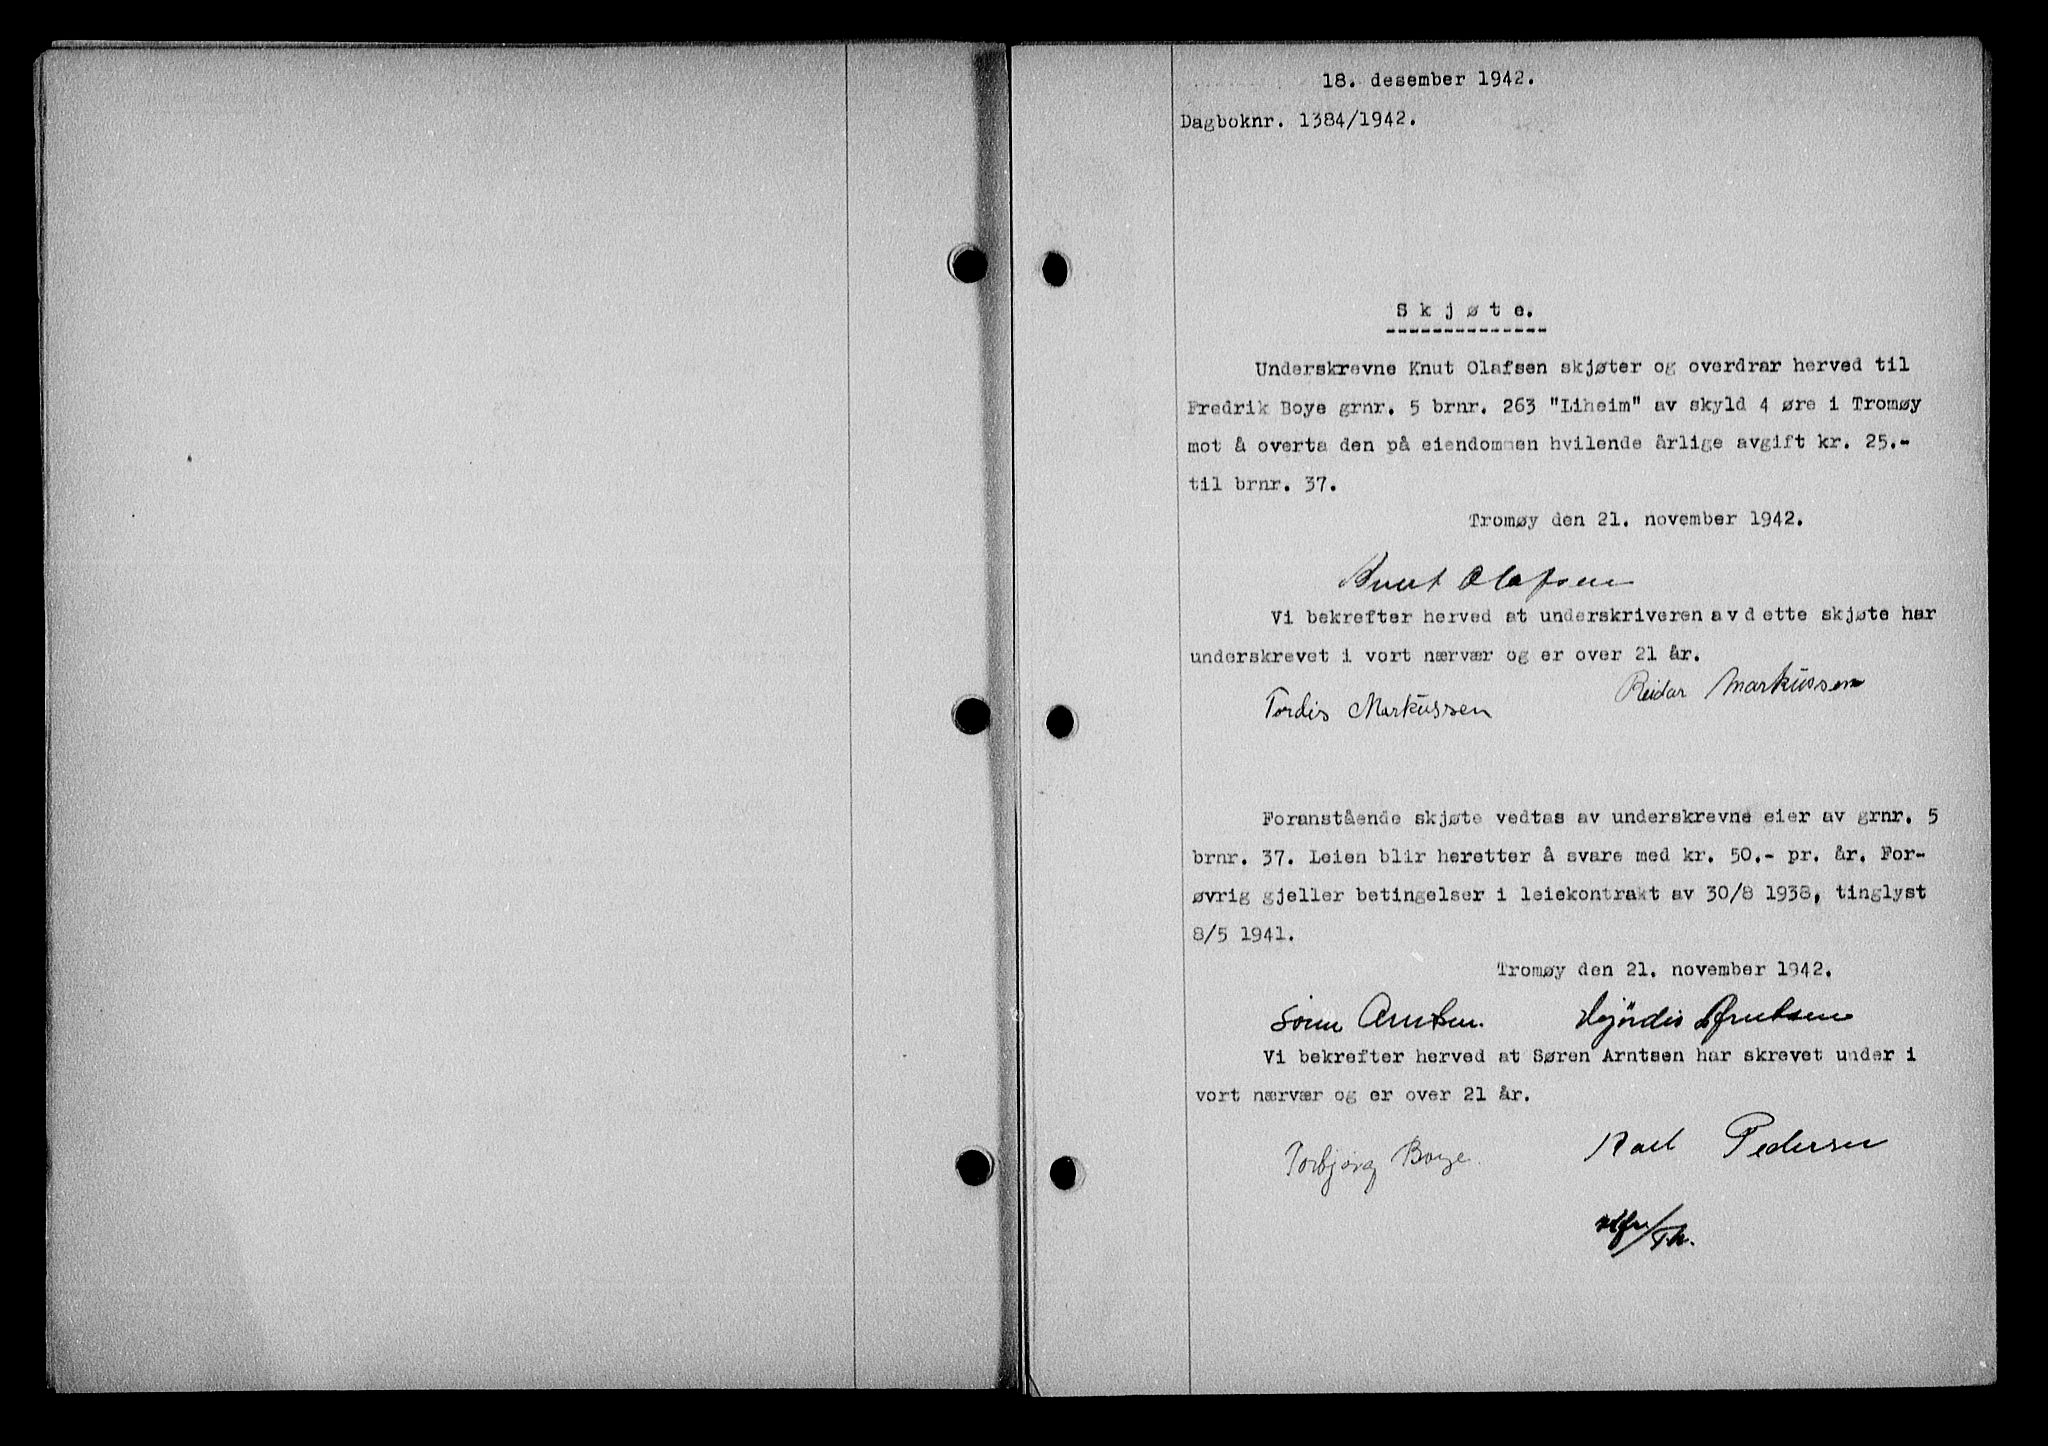 18. desember 1942.
Dagboknr. 1384/1942.
Skjøte.
Underskrevne Knut Olafsen skjøter og overdrar herved til
Fredrik Boye grnr. 5 brnr. 263 "Liheim" av skyld 4 øre i Tromøy
mot å overta den på eiendommen hvilende årlige avgift kr. 25.-
til brnr. 37.
Tromøy den 21. november 1942.
Knut Olafsen
Vi bekrefter herved at underskriveren av dette skjøte har
underskrevet i vort nærvær og er over 21 år.
Tordis Markussen Reidar Markussen
Foranstående skjøte vedtas av underskrevne eier av grnr. 5
brnr. 37. Leien blir heretter å svare med kr. 50.- pr. år. For-
øvrig gjeller betingelser i leiekontrakt av 30/8 1938, tinglyst
8/5 1941.
Tromøy den 21. november 1942.
Søren Arntsen. Hjördis Arntsen
Vi bekrefter herved at Søren Arntsen har skrevet under i
vort nærvær og er over 21 år.
Torbjørg Boye. Karl Pedersen